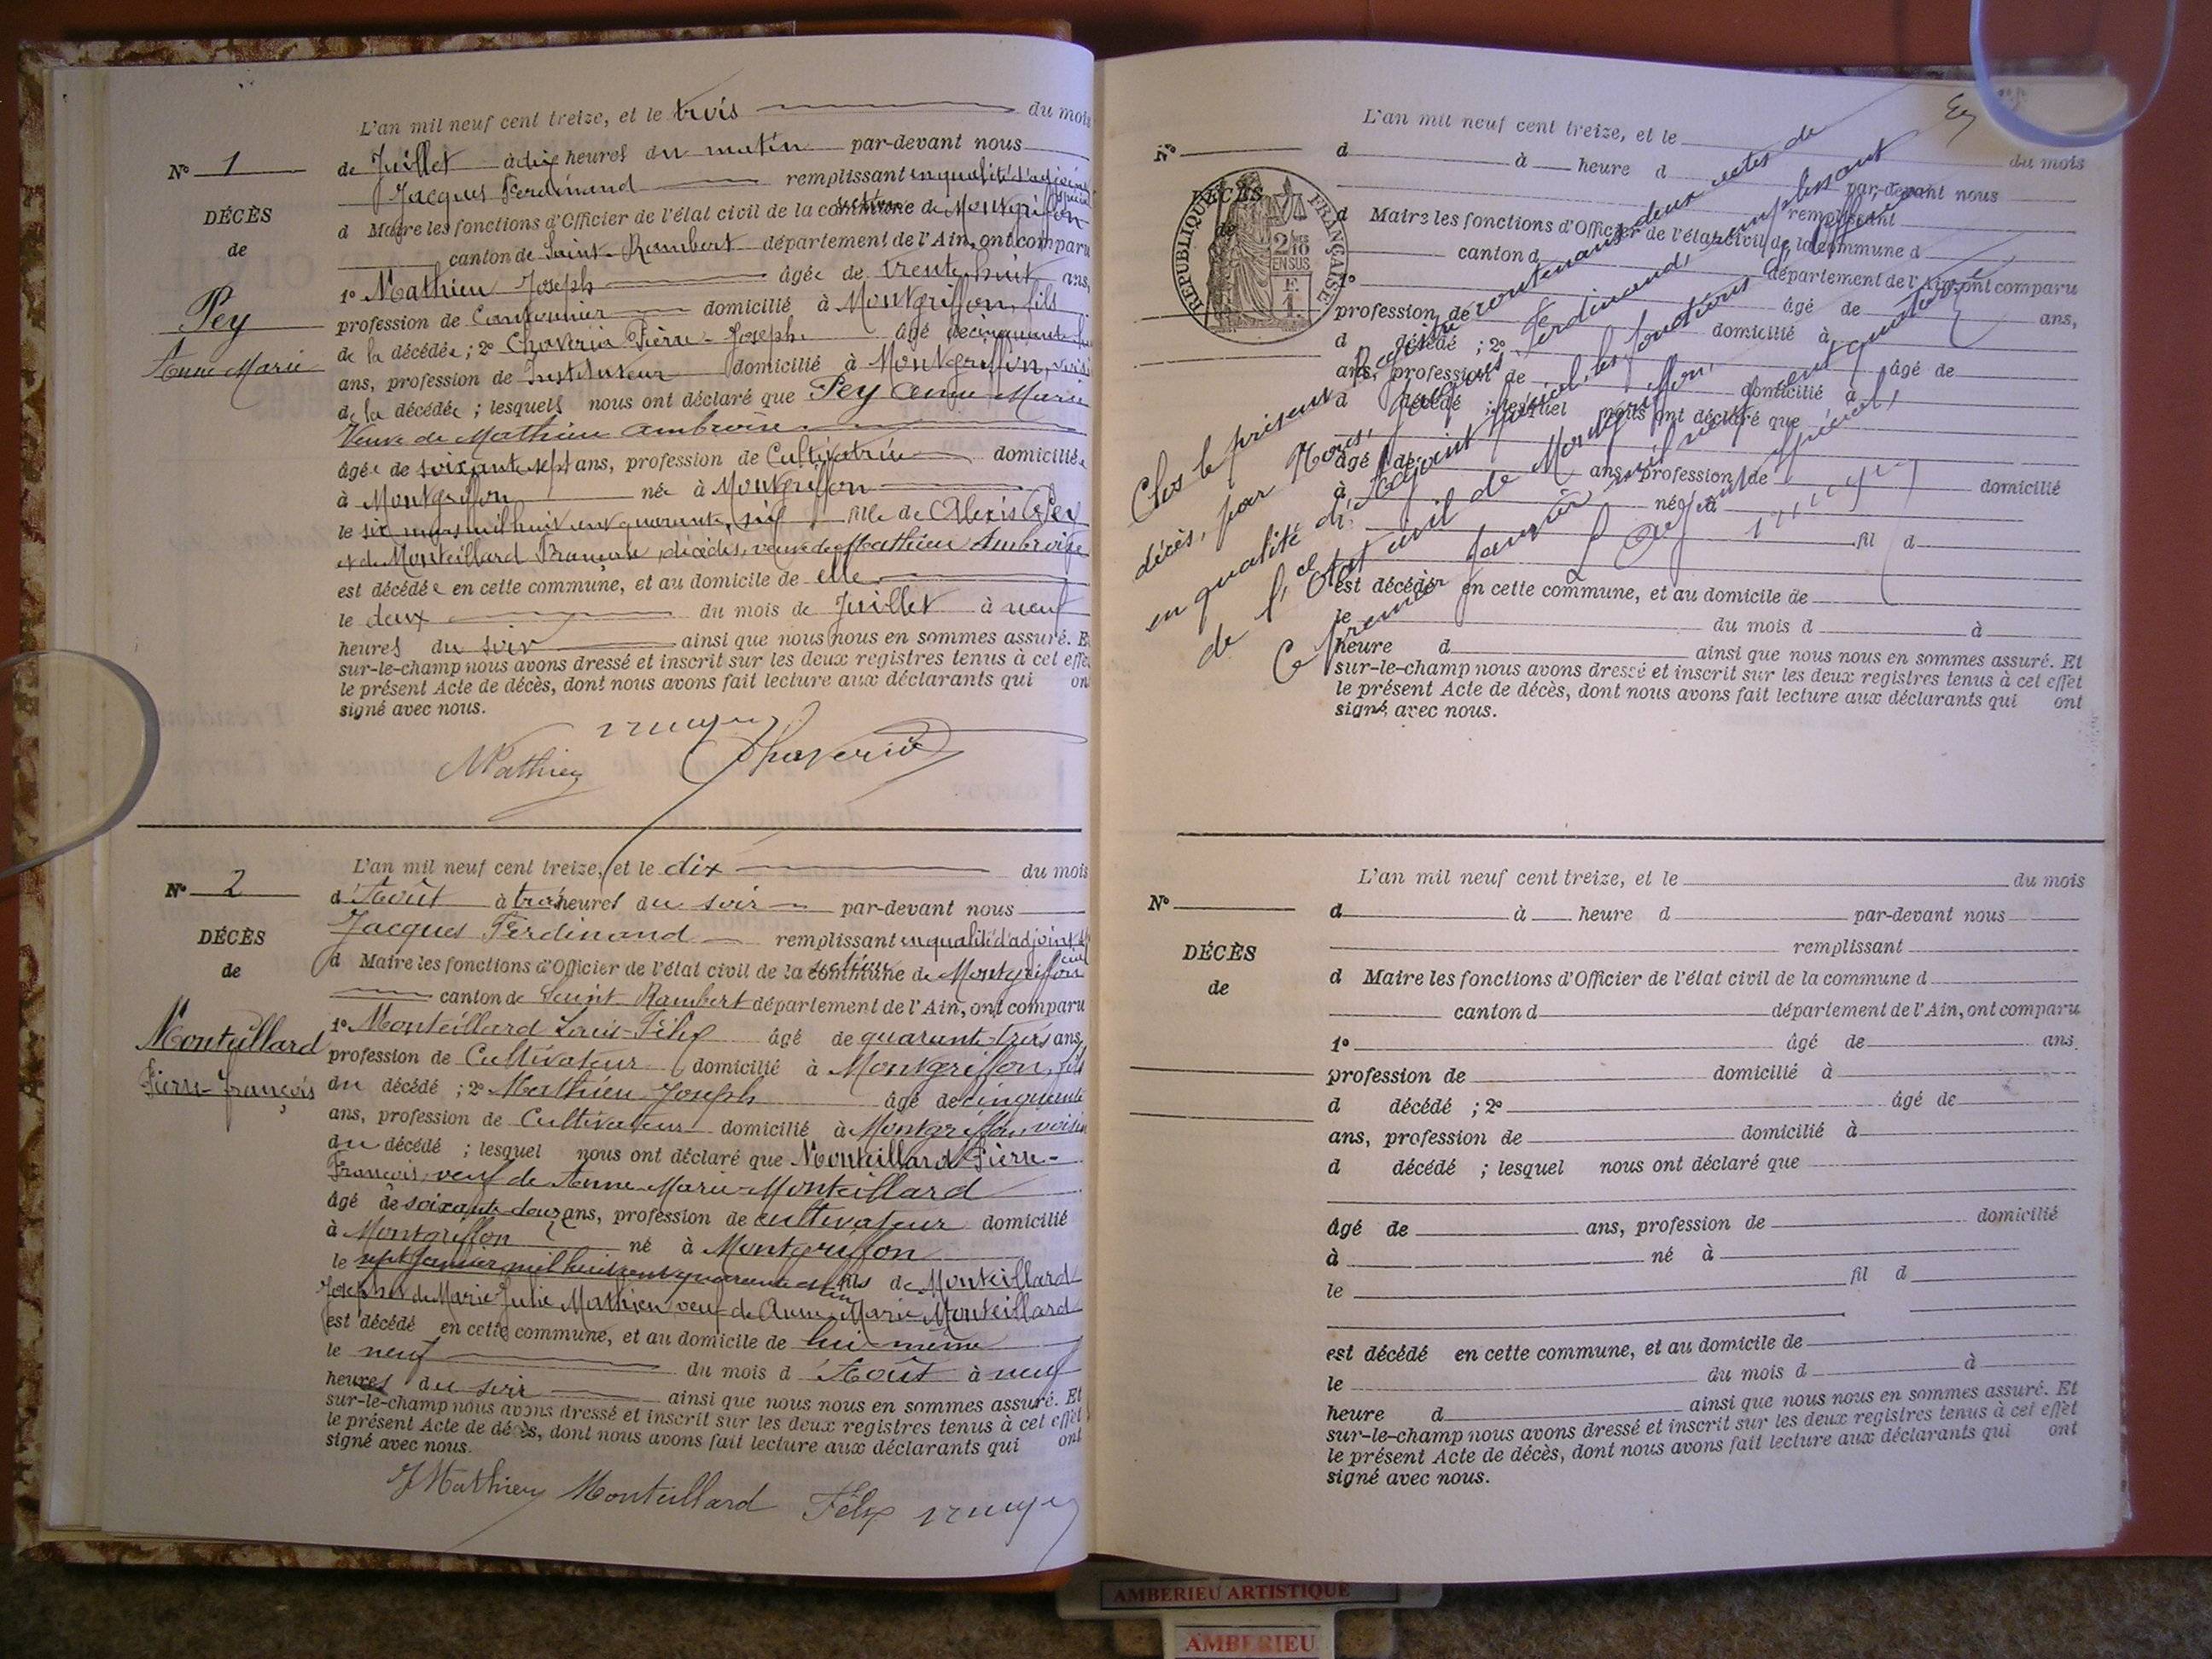 L'an mil neuf cent treize, et le trois du mois
de Juillet à dix heures du matin par-devant nous
Jacques Ferdinand remplissant en qualité d'adjoint spécial
d Maire les fonctions d'Officier de l'état civil de la commune section de Montgriffon
canton de Saint-Rambert département de l'Ain, ont comparu
1° Mathieu Joseph âgé de trente huit ans,
profession de Cantonnier domicilié à Montgriffon, fils
de la décédée ; 2° Chaverin Pierre-Joseph âgé de cinquante
ans, profession de Instituteur domicilié à Montgriffon, voisin
de la décédée ; lesquels nous ont déclaré que Pey Anne Marie
Veuve de Mathieu Ambroise
âgée de soixante sept ans, profession de Cultivatrice domiciliée
à Montgriffon née à Montgriffon
le six mars mil huit cent quarante six fille de Alexis Pey
et de Monteillard Françoise, décédés, veuve de Mathieu Ambroise
est décédée en cette commune, et au domicile de elle
le deux du mois de Juillet à neuf
heures du soir ainsi que nous nous en sommes assuré. Et
sur-le-champ nous avons dressé et inscrit sur les deux registres tenus à cet effet
le présent Acte de décès, dont nous avons fait lecture aux déclarants qui ont
signé avec nous.
N° 1
DÉCÈS
de
Pey
Anne Marie
Mathieu
L'an mil neuf cent treize, et le dix du mois
d'Août à trois heures du soir par-devant nous
Jacques Ferdinand remplissant en qualité d'adjoint spécial
d Maire les fonctions d'Officier de l'état civil de la commune section de Montgriffon
canton de Saint Rambert département de l'Ain, ont comparu
1° Monteillard Louis-Félix âgé de quarante-trois ans,
profession de Cultivateur domicilié à Montgriffon, fils
du décédé ; 2° Mathieu Joseph âgé de cinquante
ans, profession de Cultivateur domicilié à Montgriffon voisin
du décédé ; lesquel nous ont déclaré que Monteillard Pierre-
François, veuf de Anne Marie Monteillard
âgé de soixante douze ans, profession de cultivateur domicilié
à Montgriffon né à Montgriffon
le sept Janvier mil huit cent quarante et un fils de Monteillard
Joseph et de Marie Julie Mathieu veuf de Anne Marie Monteillard
est décédé en cette commune, et au domicile de lui-même
le neuf du mois d'Août à neuf
heures du soir ainsi que nous nous en sommes assuré. Et
sur-le-champ nous avons dressé et inscrit sur les deux registres tenus à cet effet
le présent Acte de décès, dont nous avons fait lecture aux déclarants qui ont
signé avec nous.
N° 2
DÉCÈS
de
Monteillard
Pierre-François
J Mathieu Monteillard Félix
L'an mil neuf cent treize, et le du mois
d à heure d par-devant nous
remplissant
d Maire les fonctions d'Officier de l'état civil de la commune d
canton d département de l'Ain, ont comparu
1° âgé de ans,
profession de domicilié à
d décédé ; 2° âgé de
ans, profession de domicilié à
d décédé ; lesquel nous ont déclaré que
âgé de ans, profession de domicilié
à né à
fil d
est décédé en cette commune, et au domicile de
le du mois d à
heure d ainsi que nous nous en sommes assuré. Et
sur-le-champ nous avons dressé et inscrit sur les deux registres tenus à cet effet
le présent Acte de décès, dont nous avons fait lecture aux déclarants qui ont
signé avec nous.
N°
DÉCÈS
de
RÉPUBLIQUE FRANÇAISE
2/10 EN SUS
Clos le présent Registre contenant deux actes de
décès, par Nous, Jacques Ferdinand, remplissant
en qualité d'Adjoint spécial, les fonctions d'officier
de l'Etat civil de Montgriffon,
Ce premier Janvier mil neuf cent quatorze
L'Adjoint spécial,
L'an mil neuf cent treize, et le du mois
N° d à heure d par-devant nous
remplissant
d Maire les fonctions d'Officier de l'état civil de la commune d
canton d département de l'Ain, ont comparu
1° âgé de ans
profession de domicilié à
d décédé ; 2° âgé de
ans, profession de domicilié à
d décédé ; lesquel nous ont déclaré que
âgé de ans, profession de domicilié
à né à
le fil d
est décédé en cette commune, et au domicile de
le du mois d à
heure d ainsi que nous nous en sommes assuré. Et
sur-le-champ nous avons dressé et inscrit sur les deux registres tenus à cet effet
le présent Acte de décès, dont nous avons fait lecture aux déclarants qui ont
signé avec nous.
DÉCÈS
de
AMBERIEU ARTISTIQUE
AMBERIEU